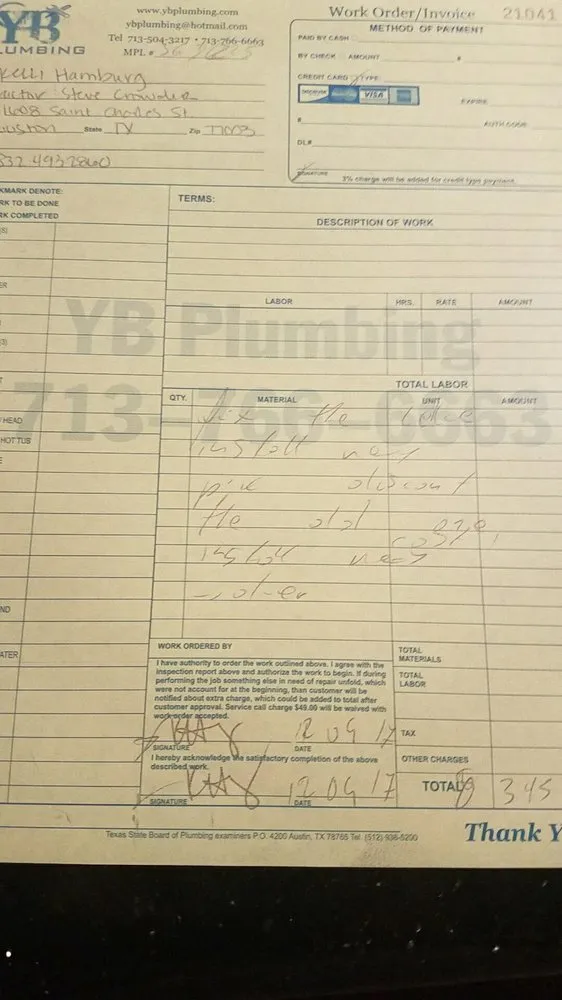 YB
LUMBING
www.ybplumbing.com
ybplumbing@hotmail.com
Tel 713-504-3217 • 713-766-6663
MPL #
Work Order/Invoice 21041
METHOD OF PAYMENT
PAID BY CASH
BY CHECK AMOUNT #
CREDIT CARD TYPE:
DISCOVER VISA
EXPIRE
# AUTH CODE
DL#
SIGNATURE
3% charge will be added for credit type payment.
Kelli Hamburg
Steve Crowder
1608 Saint Charles St
ouston State TX Zip 77003
832 4932860
KMARK DENOTE:
RK TO BE DONE
RK COMPLETED
TERMS:
DESCRIPTION OF WORK
LABOR HRS. RATE AMOUNT
YB Plumbing
713-766-6663
TOTAL LABOR
QTY. MATERIAL UNIT AMOUNT
fix the
install new
the old
install new
HEAD
HOT TUB
ND
ATER
WORK ORDERED BY
I have authority to order the work outlined above. I agree with the
inspection report above and authorize the work to begin. If during
performing the job something else in need of repair unfold, which
were not account for at the beginning, than customer will be
notified about extra charge, which could be added to total after
customer approval. Service call charge $49.00 will be waived with
work order accepted.
12 09 17
SIGNATURE DATE
I hereby acknowledge the satisfactory completion of the above
described work.
12 09 17
SIGNATURE DATE
TOTAL MATERIALS
TOTAL LABOR
TAX
OTHER CHARGES
TOTAL $ 345
Texas State Board of Plumbing examiners P.O. 4200 Austin, TX 78765 Tel. (512) 936-5200
Thank Y